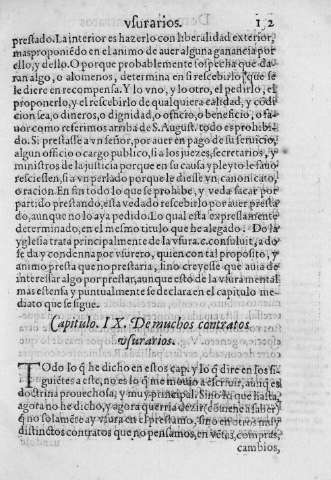 vsurarios. 12
prestado. La interior es hazerlo con liberalidad exterior,
mas proponiẽdo en el animo de auer alguna ganancia por
ello, y dello. O porque probablemente sospecha que da
ran algo, o alomenos, determina en si rescebirlo q̃ se
le diere en recompensa. Y lo vno, y lo otro, el pedirlo, el
proponerlo, y el rescebirlo de qualquiera calidad, y cõdi
cion sea, o dineros, o dignidad, o officio, o beneficio, o fa
uor como referimos arriba de S. August. todo es prohibi
do. Si prestasse a vn señor, por auer en pago de su seruicio,
algun officio o cargo publico, si a los juezes, secretarios, y
ministros de la justicia porque en su causa y pleyto le fauo
resciessen, si a vn perlado porque le diesse vn canonicato,
o racion. En fin todo lo que se prohibe, y veda sacar por
partido prestando, esta vedado rescebirlo por auer presta
do, aunque no lo aya pedido. Lo qual esta expressamente
determinado, en el mesmo titulo que he alegado. Do la
yglesia trata principalmente de la vsura. c. consuluit, a do
se da y condenna por vsurero, quien con tal proposito, y
animo presta que no prestaria, sino creyesse que auia de
interessar algo por prestar, aunque esto de la vsura mental
mas estensa y puntualmente se declara en el capitulo me
diato que se sigue.
Capitulo. IX. De muchos contratos
vsurarios.
TOdo lo q̃ he dicho en estos cap. y lo q̃ dire en los si-
guiẽtes a este, no es lo q̃ me mouio a escreuir, aunq̃ es
doctrina prouechosa, y muy principal. Sino lo que hasta
agora no he dicho, y agora querria dezir (cõuiene a saber)
q̃ no solamẽte ay vsura en el prestamo, sino en otros muy
distinctos contratos que no pensamos, en vẽtas, compras,
cambios,